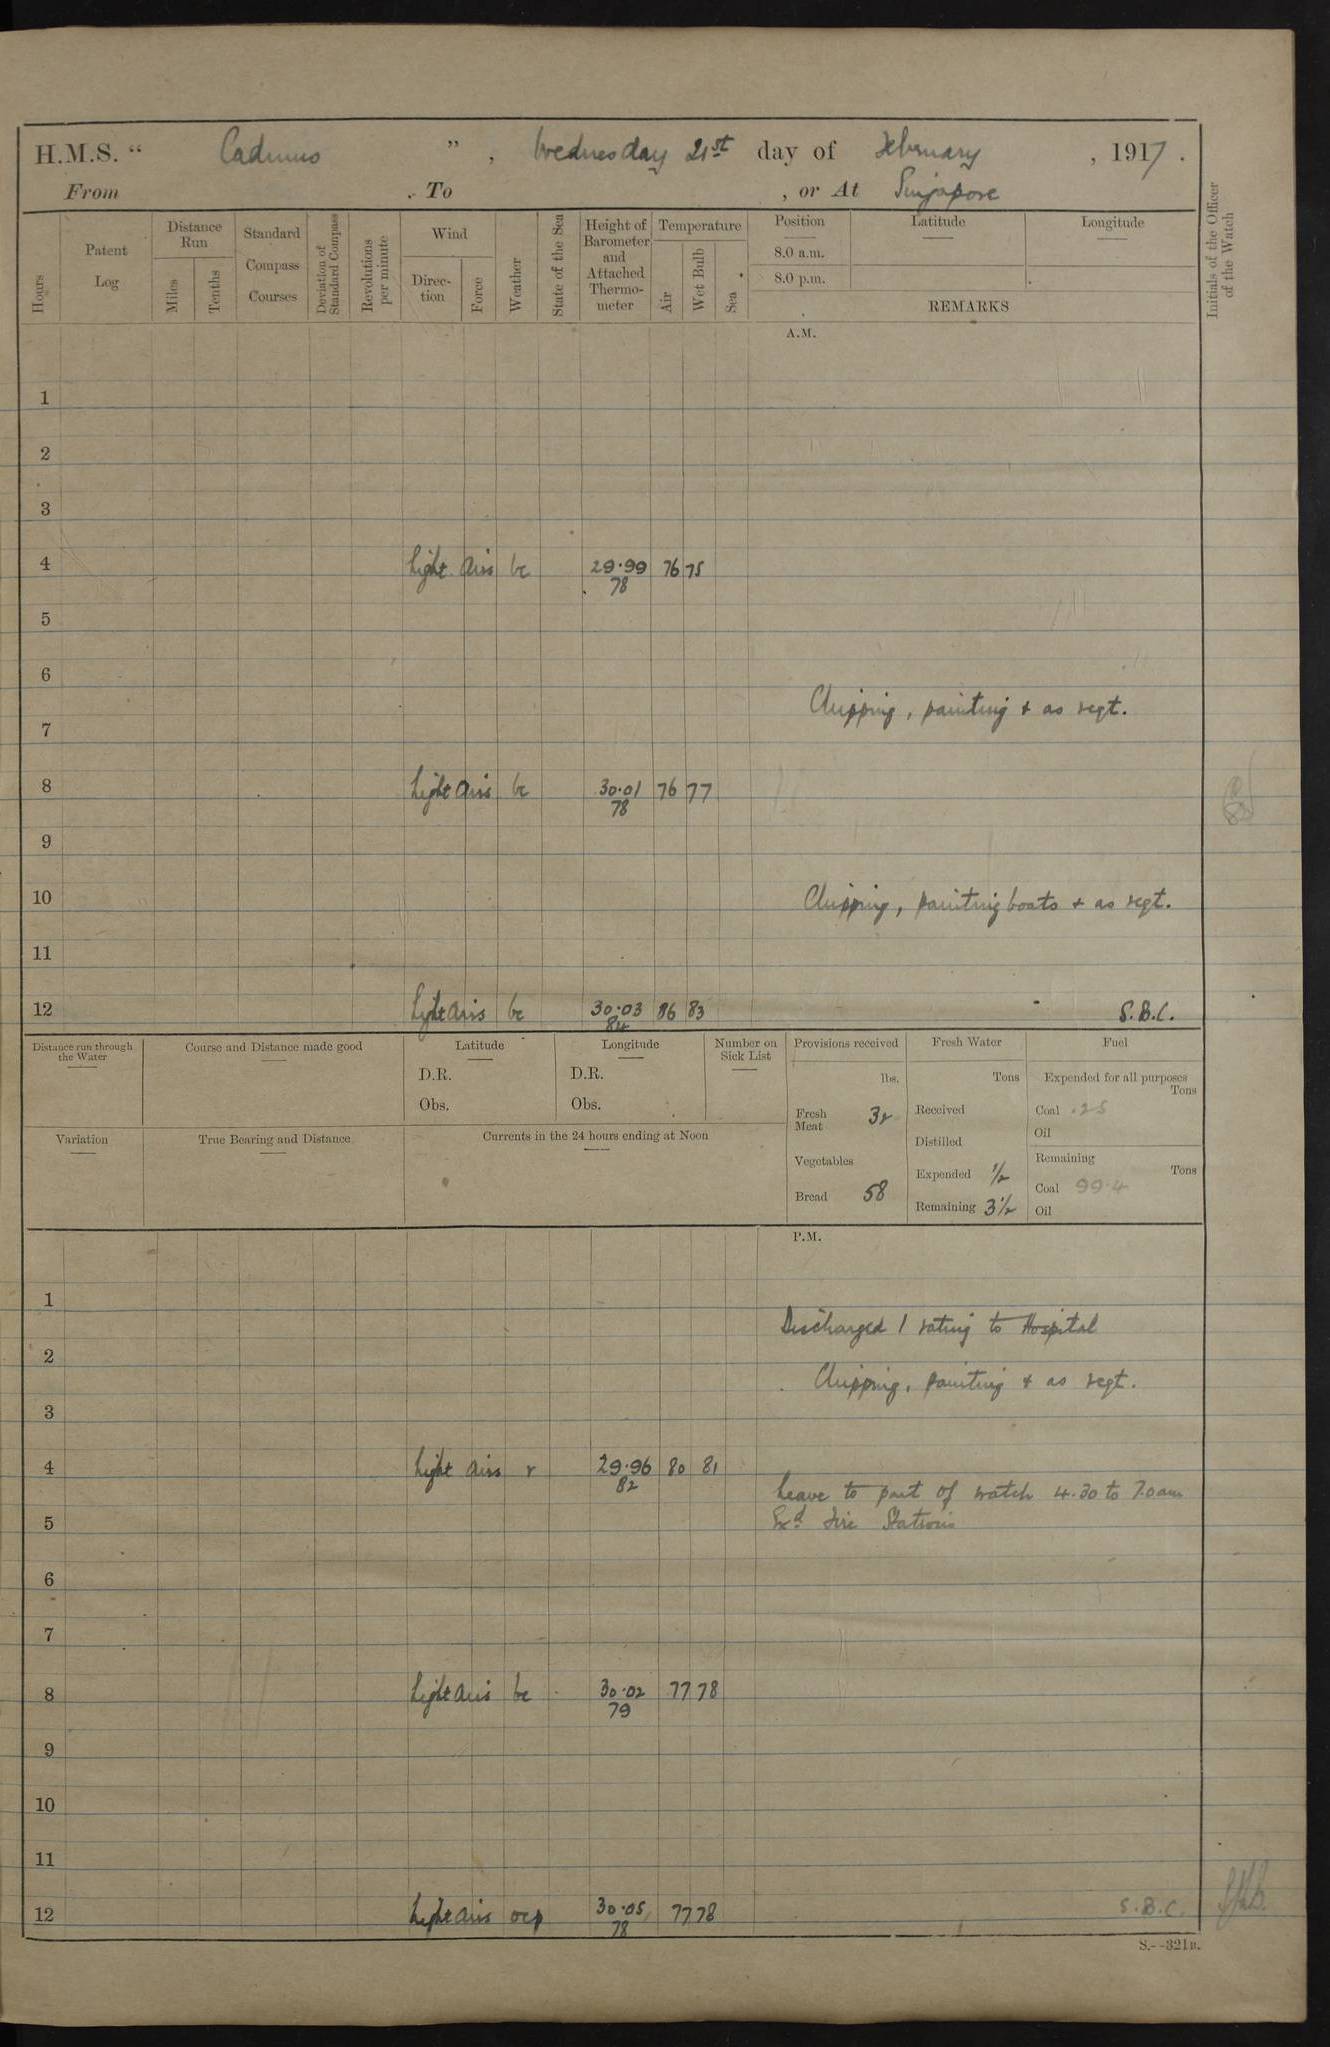 H.M.S. “ Cadmus ” , Wednesday 21st day of February , 1917 .
From . To , or At Singapore
Hours
Patent Log
Distance Run
Miles
Tenths
Standard Compass Courses
Deviation of Standard Compass
Revolutions per minute
Wind
Direc- tion
Force
Weather
State of the Sea
Height of Barometer and Attached Thermo- meter
Temperature
Air
Wet Bulb
Sea
Position
8.0 a.m.
8.0 p.m.
Latitude
Longitude
REMARKS
Initials of the Officer of the Watch
A.M.
1
2
3
4 Light airs bc 29.99 76 75
78
5
6
Chipping, painting & as reqt.
7
8 Light airs bc 30.01 76 77
78
9
10 Chipping, painting boats & as reqt.
11
12 Light airs bc 30.03 86 83 S.B.C.
84
Distance run through the Water
Course and Distance made good
Latitude
D.R.
Obs.
Longitude
D.R.
Obs.
Number on Sick List
Provisions received
lbs.
Fresh Meat 32
Vegetables
Bread 58
Fresh Water
Tons
Received
Distilled
Expended 1/2
Remaining 3 1/2
Fuel
Expended for all purposes
Tons
Coal .25
Oil
Remaining
Tons
Coal 99.4
Oil
Variation
True Bearing and Distance
Currents in the 24 hours ending at Noon
P.M.
1
Discharged 1 rating to Hospital
2
Chipping, painting & as reqt.
3
4 Light airs r 29.96 80 81
82
Leave to part of watch 4.30 to 7.0 am
5 Exd Fire Stations
6
7
8 Light airs bc 30.02 77 78
79
9
10
11
12 Light airs ocp 30.05 77 78 S.B.C.
78
S.--321B.